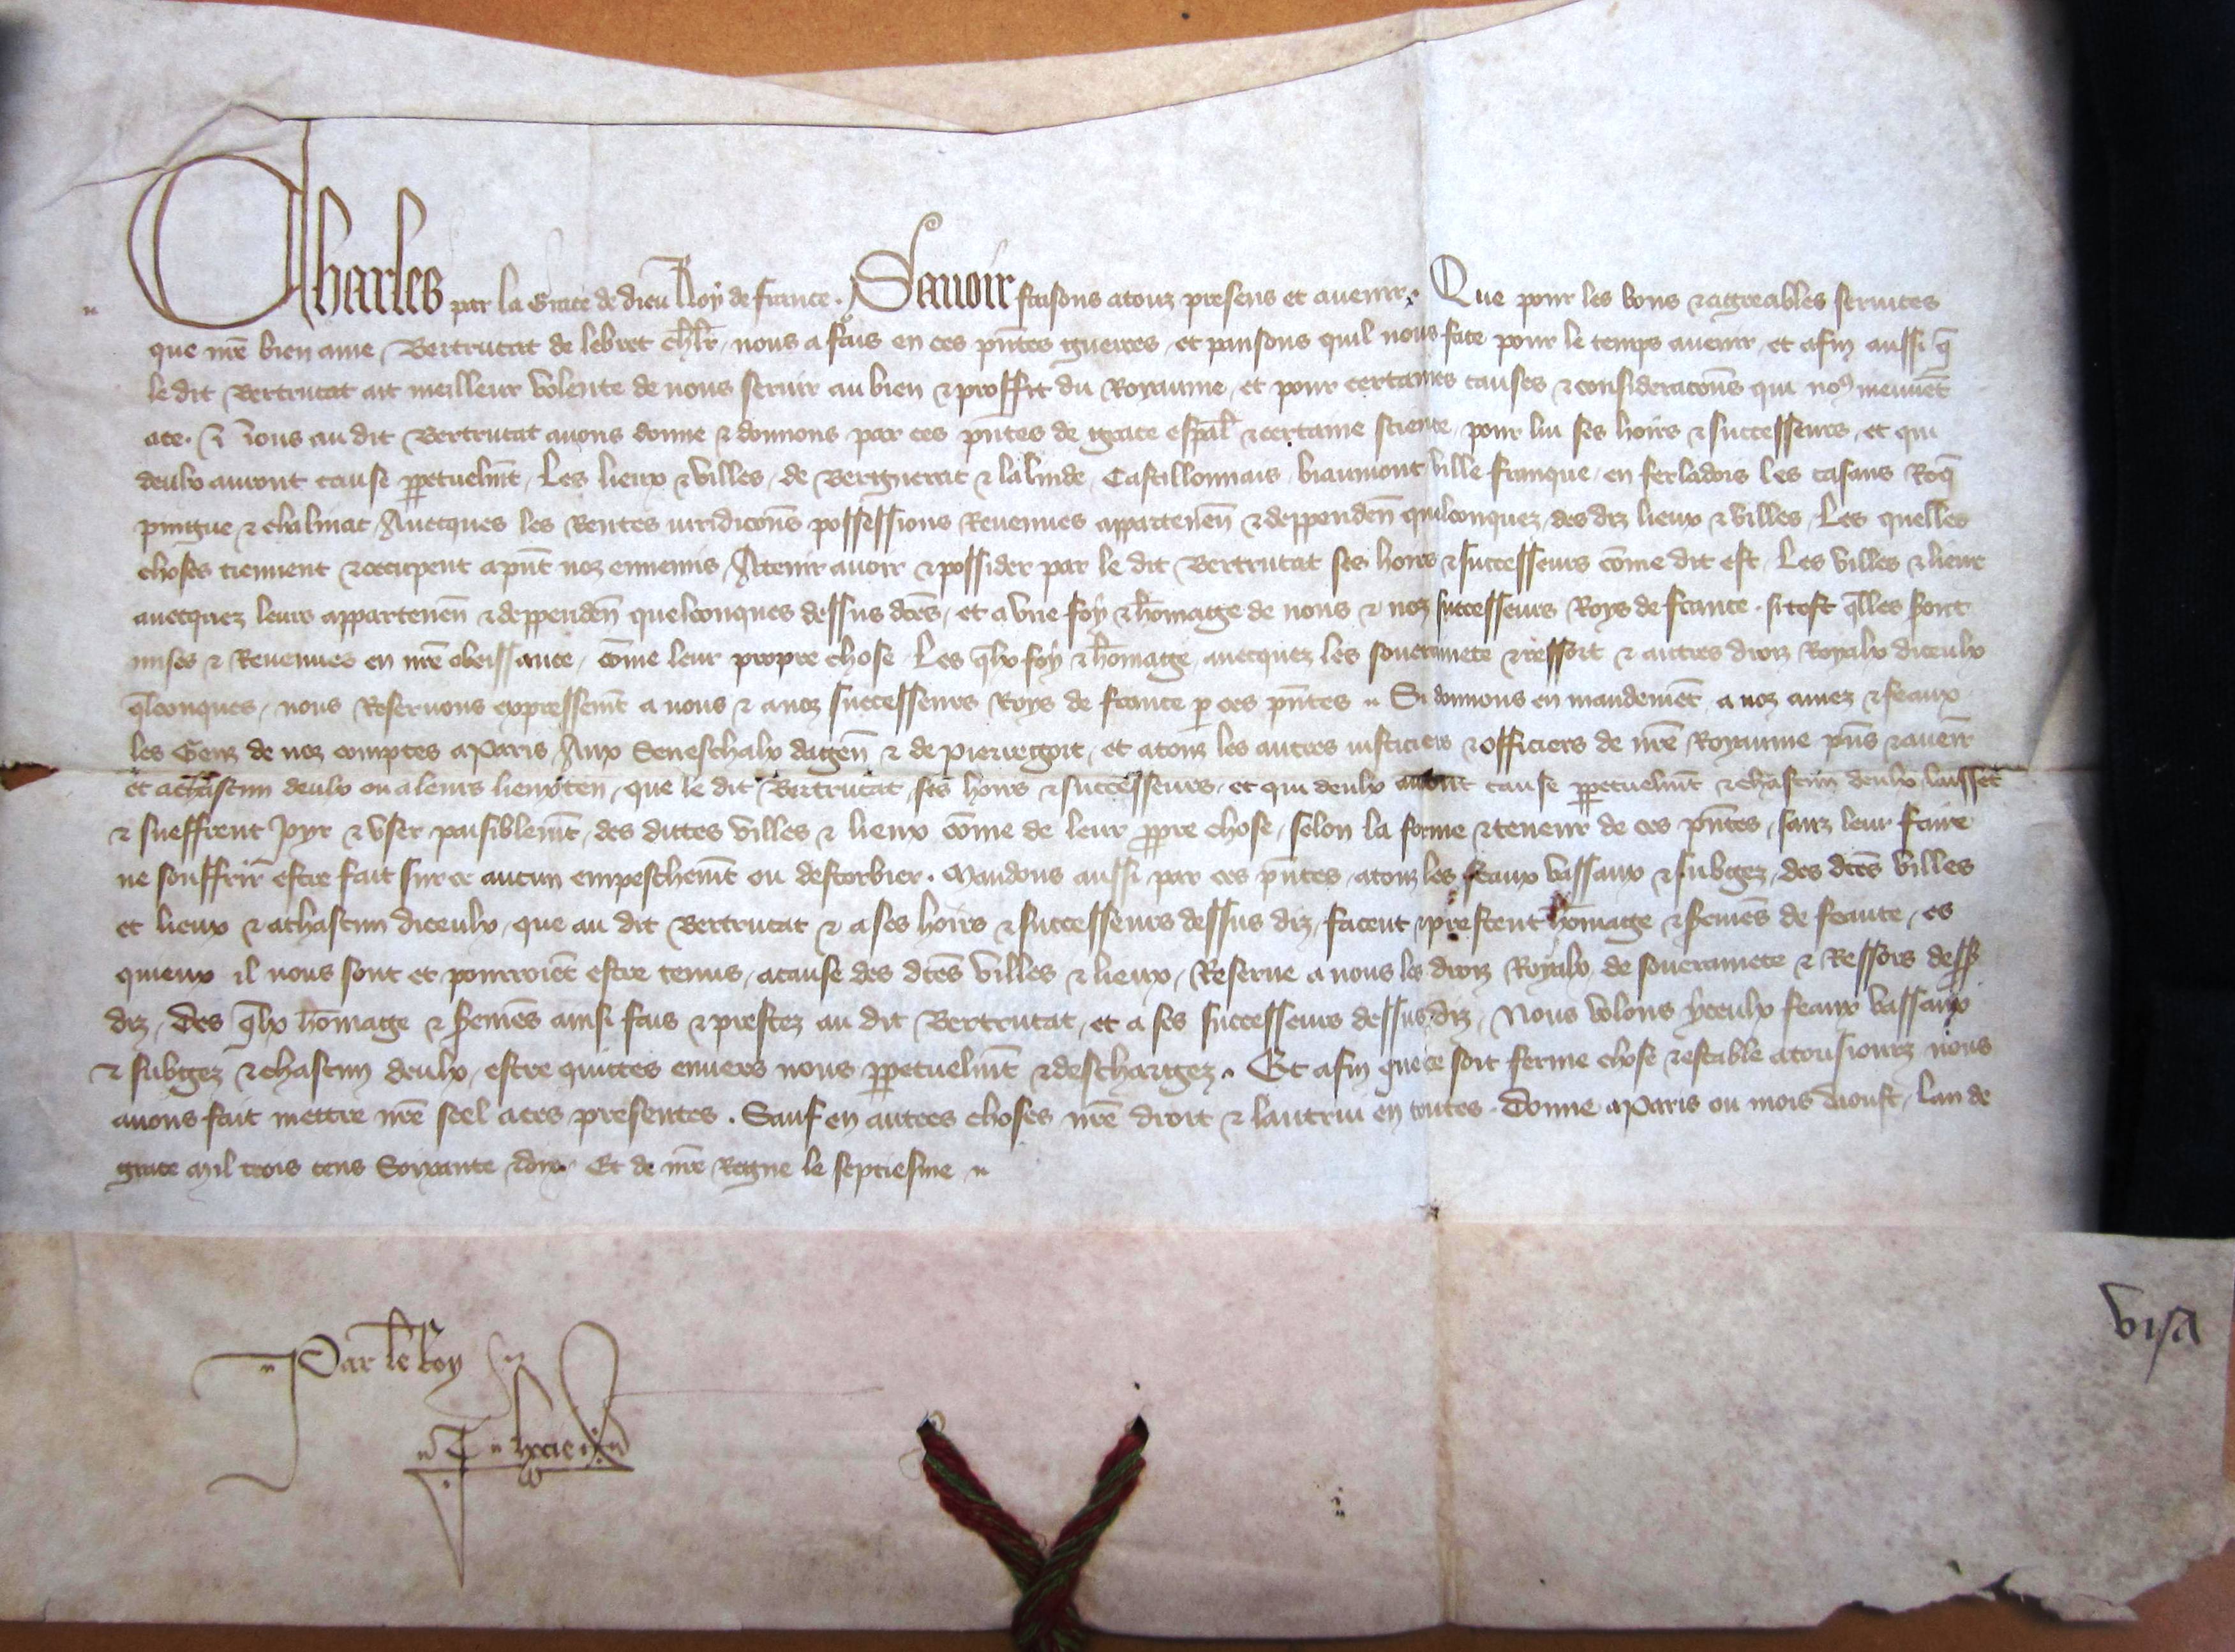 Charles par la Grace de dieu Roy de france. Sauoir faisons atouz presens et auenir. Que pour les bons ⁊ agreables seruices
que nr̄e bien ame Bertrucat de lebret chl̄r nous a fais en ces pn̄tes guerres et pansons quil nous face pour le temps auenir et afin aussi q̄
le dit Bertrucat ait meilleur volente de nous seruir au bien ⁊ proffit du Royaume et pour certaines causes ⁊ consideracōns qui noꝰ meuuēt
ace. nous au dit Bertrucat auons donne ⁊ donnons par ces pn̄tes de grace esp̄al ⁊ certaine science pour lui ses hoirs ⁊ successeurs et qui
deulx auront cause ꝑpetuelmt̄ Les lieux ⁊ villes de Bergerac ⁊ lalinde Castillonnais biaumont ville franque en les casaus Roq̄
pingue ⁊ chalmat Auecques les Rentes iuridicōns possessions Reuenues appartenen̄ ⁊ deppenden̄ quelconquez des diz lieux ⁊ villes Les quelles
choses tiennent ⁊ occupent apn̄t noz ennemis Atenir auoir ⁊ possider par le dit Bertrucat ses hoirs ⁊ successeurs cōme dit est Les villes ⁊ lieux
auecquez leurs appartenen̄ ⁊ deppenden̄ quelconques dessus dc̄es et a vne foy ⁊ hōmage de nous ⁊ noz successeurs Roys de france. si tost q̄lles sont
mises ⁊ Reuenues en nr̄e obeissance cōme leur propre chose Les q̄lx foy ⁊ hōmage auecquez les souerainete ⁊ ressort ⁊ autres droiz Royalx diceulx
q̄lconques nous Reseruons expressemt̄ a nous ⁊ a noz successeurs Roys de france ꝑ ces pn̄tes Si donnons en mandemēt a noz amez ⁊ feaux
les Genz de noz comptes aParis Aux Seneschalx dagen̄ ⁊ de pierregort et atouz les autres iusticiers ⁊ officiers de nr̄e Royaume pn̄s ⁊ auenir
et achascun deulx ou aleurs lieuxten̄ que le dit Bertrucat ses hoirs ⁊ successeurs et qui deulx auront cause ꝑpetuelmt̄ ⁊ chascun deulx laissēt
⁊ sueffrent Joyr ⁊ vser paisiblemt̄ des dittes villes ⁊ lieux cōme de leur ꝓpre chose selon la forme ⁊ teneur de ces pn̄tes sanz leur faire
ne souffrir estre fait sur ce aucun empeschemt̄ ou destorbier. Mandons aussi par ces pn̄tes atouz les feaux vassaux ⁊ subgez des dc̄es villes
et lieux ⁊ achascun diceulx que au dit Bertrucat ⁊ a ses hoirs ⁊ successeurs dessus diz facent ⁊ prestent hōmage ⁊ s̄emēs de feaute es
quieux il nous sont et pourroiēt estre tenus acause des dc̄es villes ⁊ lieux Reserue a nous les droiz Royalx de souerainete ⁊ Ressors dess
diz Des q̄lx hōmage ⁊ s̄emēs ainsi fais ⁊ prestez au dit Bertrucat et a ses successeurs dessus diz Nous volons yceulx feaux vassaux
⁊ subgez ⁊ chascun deulx estre quittes enuers nous ꝑpetuelmt̄ ⁊ deschargez. Et afin que ce soit ferme chose ⁊ estable atousiourz nous
auons fait mettre nr̄e seel aces presentes. Sauf en autres choses nr̄e droit ⁊ lautrui en toutes. Donne aParis ou mois daoust lan de
grace mil trois cens Soixante ⁊ dix Et de nr̄e Regne le septiesme
Par le Roy
visa